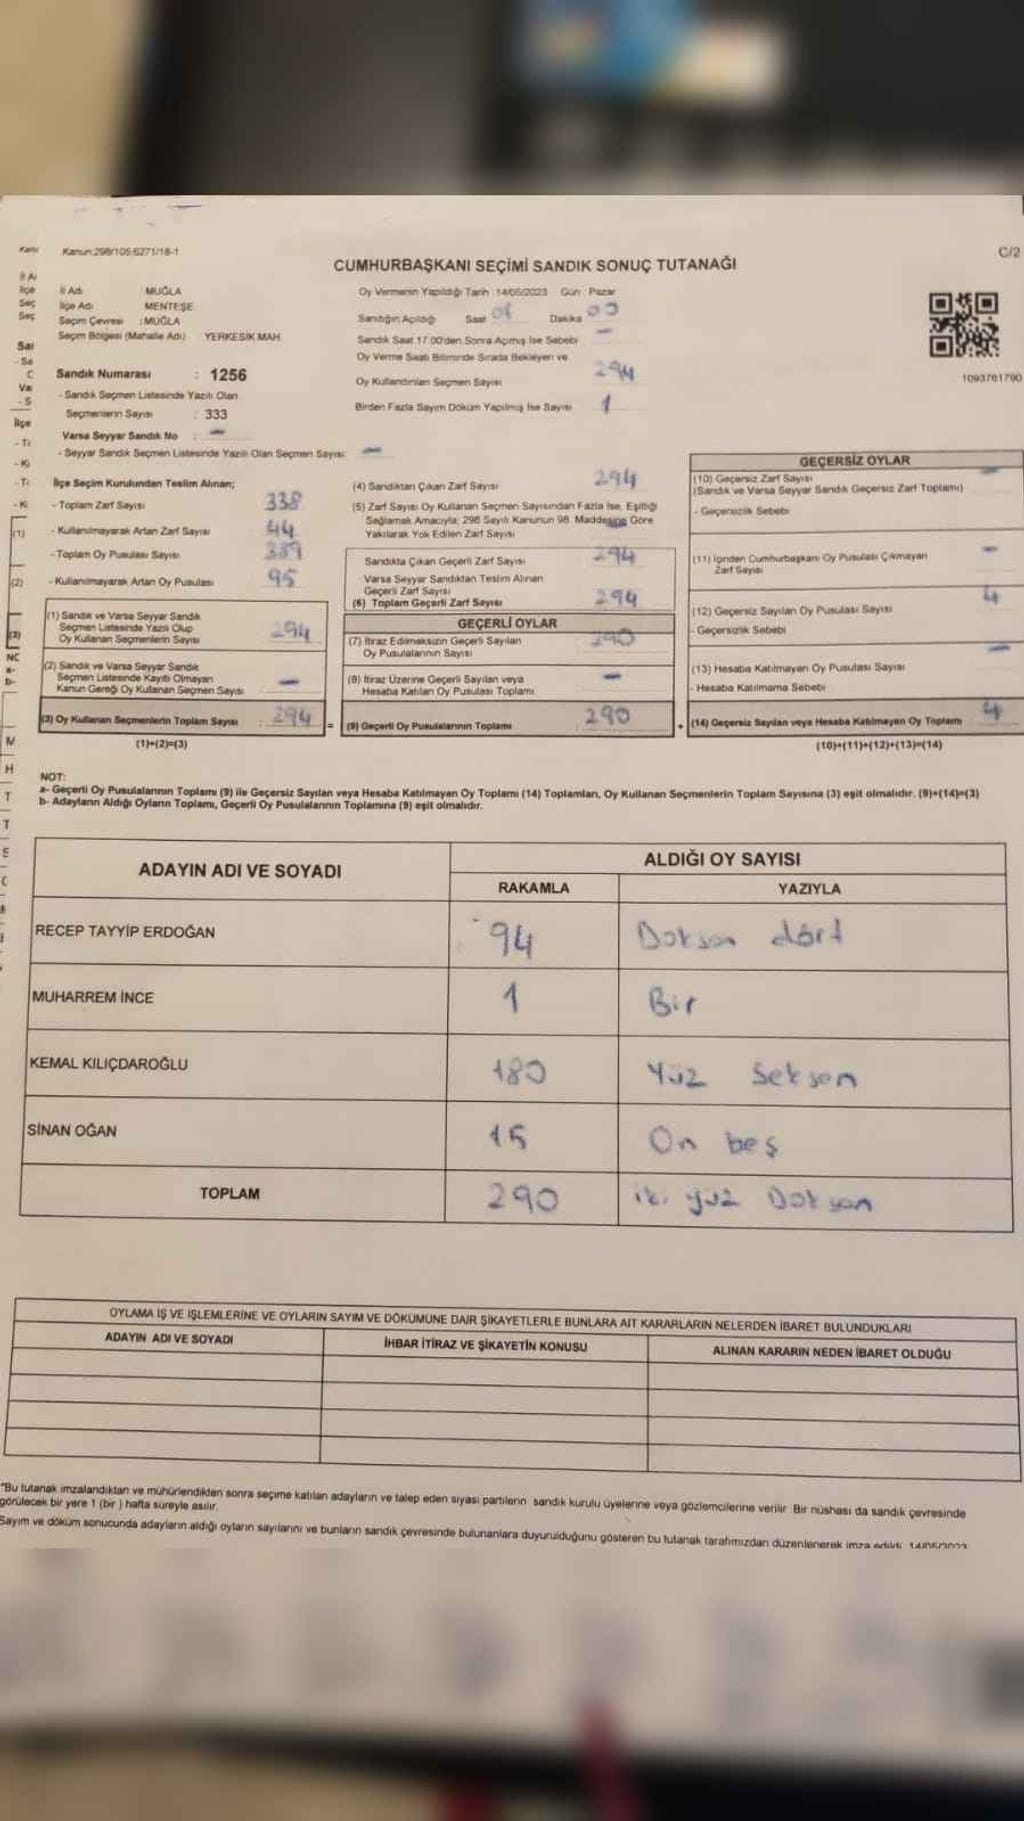 Kanun:298/105-6271/18-1
C/2
CUMHURBAŞKANI SEÇİMİ SANDIK SONUÇ TUTANAĞI
İl Adı MUĞLA
İlçe Adı MENTEŞE
Seçim Çevresi : MUĞLA
Seçim Bölgesi (Mahalle Adı) YERKESİK MAH.
Sandık Numarası : 1256
- Sandık Seçmen Listesinde Yazılı Olan
Seçmenlerin Sayısı : 333
Varsa Seyyar Sandık No : -
- Seyyar Sandık Seçmen Listesinde Yazılı Olan Seçmen Sayısı: -
Oy Vermenin Yapıldığı Tarih : 14/05/2023 Gün : Pazar
Sandığın Açıldığı Saat 08 Dakika 00
Sandık Saat 17.00'den Sonra Açımış İse Sebebi -
Oy Verme Saati Bitiminde Sırada Bekleyen ve
Oy Kullandırılan Seçmen Sayısı 294
Birden Fazla Sayım Döküm Yapılmış İse Sayısı 1
1093761790
İlçe Seçim Kurulundan Teslim Alınan;
- Toplam Zarf Sayısı 338
- Kullanılmayarak Artan Zarf Sayısı 44
- Toplam Oy Pusulası Sayısı 389
- Kullanılmayarak Artan Oy Pusulası 95
(1) Sandık ve Varsa Seyyar Sandık
Seçmen Listesinde Yazılı Olup
Oy Kullanan Seçmenlerin Sayısı 294
(2) Sandık ve Varsa Seyyar Sandık
Seçmen Listesinde Kayıtlı Olmayan
Kanun Gereği Oy Kullanan Seçmen Sayısı -
(3) Oy Kullanan Seçmenlerin Toplam Sayısı : 294 =
(1)+(2)=(3)
(4) Sandıktan Çıkan Zarf Sayısı 294
(5) Zarf Sayısı Oy Kullanan Seçmen Sayısından Fazla İse, Eşitliği
Sağlamak Amacıyla; 298 Sayılı Kanunun 98. Maddesine Göre
Yakılarak Yok Edilen Zarf Sayısı
Sandıkta Çıkan Geçerli Zarf Sayısı 294
Varsa Seyyar Sandıktan Teslim Alınan
Geçerli Zarf Sayısı
(6) Toplam Geçerli Zarf Sayısı 294
GEÇERLİ OYLAR
(7) İtiraz Edilmeksizin Geçerli Sayılan
Oy Pusulalarının Sayısı 290
(8) İtiraz Üzerine Geçerli Sayılan veya
Hesaba Katılan Oy Pusulası Toplamı -
(9) Geçerli Oy Pusulalarının Toplamı : 290 +
GEÇERSİZ OYLAR
(10) Geçersiz Zarf Sayısı -
(Sandık ve Varsa Seyyar Sandık Geçersiz Zarf Toplamı)
- Geçersizlik Sebebi
(11) İçinden Cumhurbaşkanı Oy Pusulası Çıkmayan -
Zarf Sayısı
(12) Geçersiz Sayılan Oy Pusulası Sayısı 4
- Geçersizlik Sebebi
(13) Hesaba Katılmayan Oy Pusulası Sayısı -
- Hesaba Katılmama Sebebi
(14) Geçersiz Sayılan veya Hesaba Katılmayan Oy Toplamı 4
(10)+(11)+(12)+(13)=(14)
NOT:
a- Geçerli Oy Pusulalarının Toplamı (9) ile Geçersiz Sayılan veya Hesaba Katılmayan Oy Toplamı (14) Toplamları, Oy Kullanan Seçmenlerin Toplam Sayısına (3) eşit olmalıdır. (9)+(14)=(3)
b- Adayların Aldığı Oyların Toplamı, Geçerli Oy Pusulalarının Toplamına (9) eşit olmalıdır.
ADAYIN ADI VE SOYADI ALDIĞI OY SAYISI
RAKAMLA YAZIYLA
RECEP TAYYİP ERDOĞAN 94 Doksan dört
MUHARREM İNCE 1 Bir
KEMAL KILIÇDAROĞLU 180 Yüz Seksen
SİNAN OĞAN 15 On beş
TOPLAM 290 iki yüz Doksan
OYLAMA İŞ VE İŞLEMLERİNE VE OYLARIN SAYIM VE DÖKÜMÜNE DAİR ŞİKAYETLERLE BUNLARA AİT KARARLARIN NELERDEN İBARET BULUNDUKLARI
ADAYIN ADI VE SOYADI İHBAR İTİRAZ VE ŞİKAYETİN KONUSU ALINAN KARARIN NEDEN İBARET OLDUĞU
"Bu tutanak imzalandıktan ve mühürlendikten sonra seçime katılan adayların ve talep eden siyasi partilerin sandık kurulu üyelerine veya gözlemcilerine verilir. Bir nüshası da sandık çevresinde
görülecek bir yere 1 (bir ) hafta süreyle asılır.
Sayım ve döküm sonucunda adayların aldığı oyların sayılarını ve bunların sandık çevresinde bulunanlara duyurulduğunu gösteren bu tutanak tarafımızdan düzenlenerek imza edildi. 14/05/2023